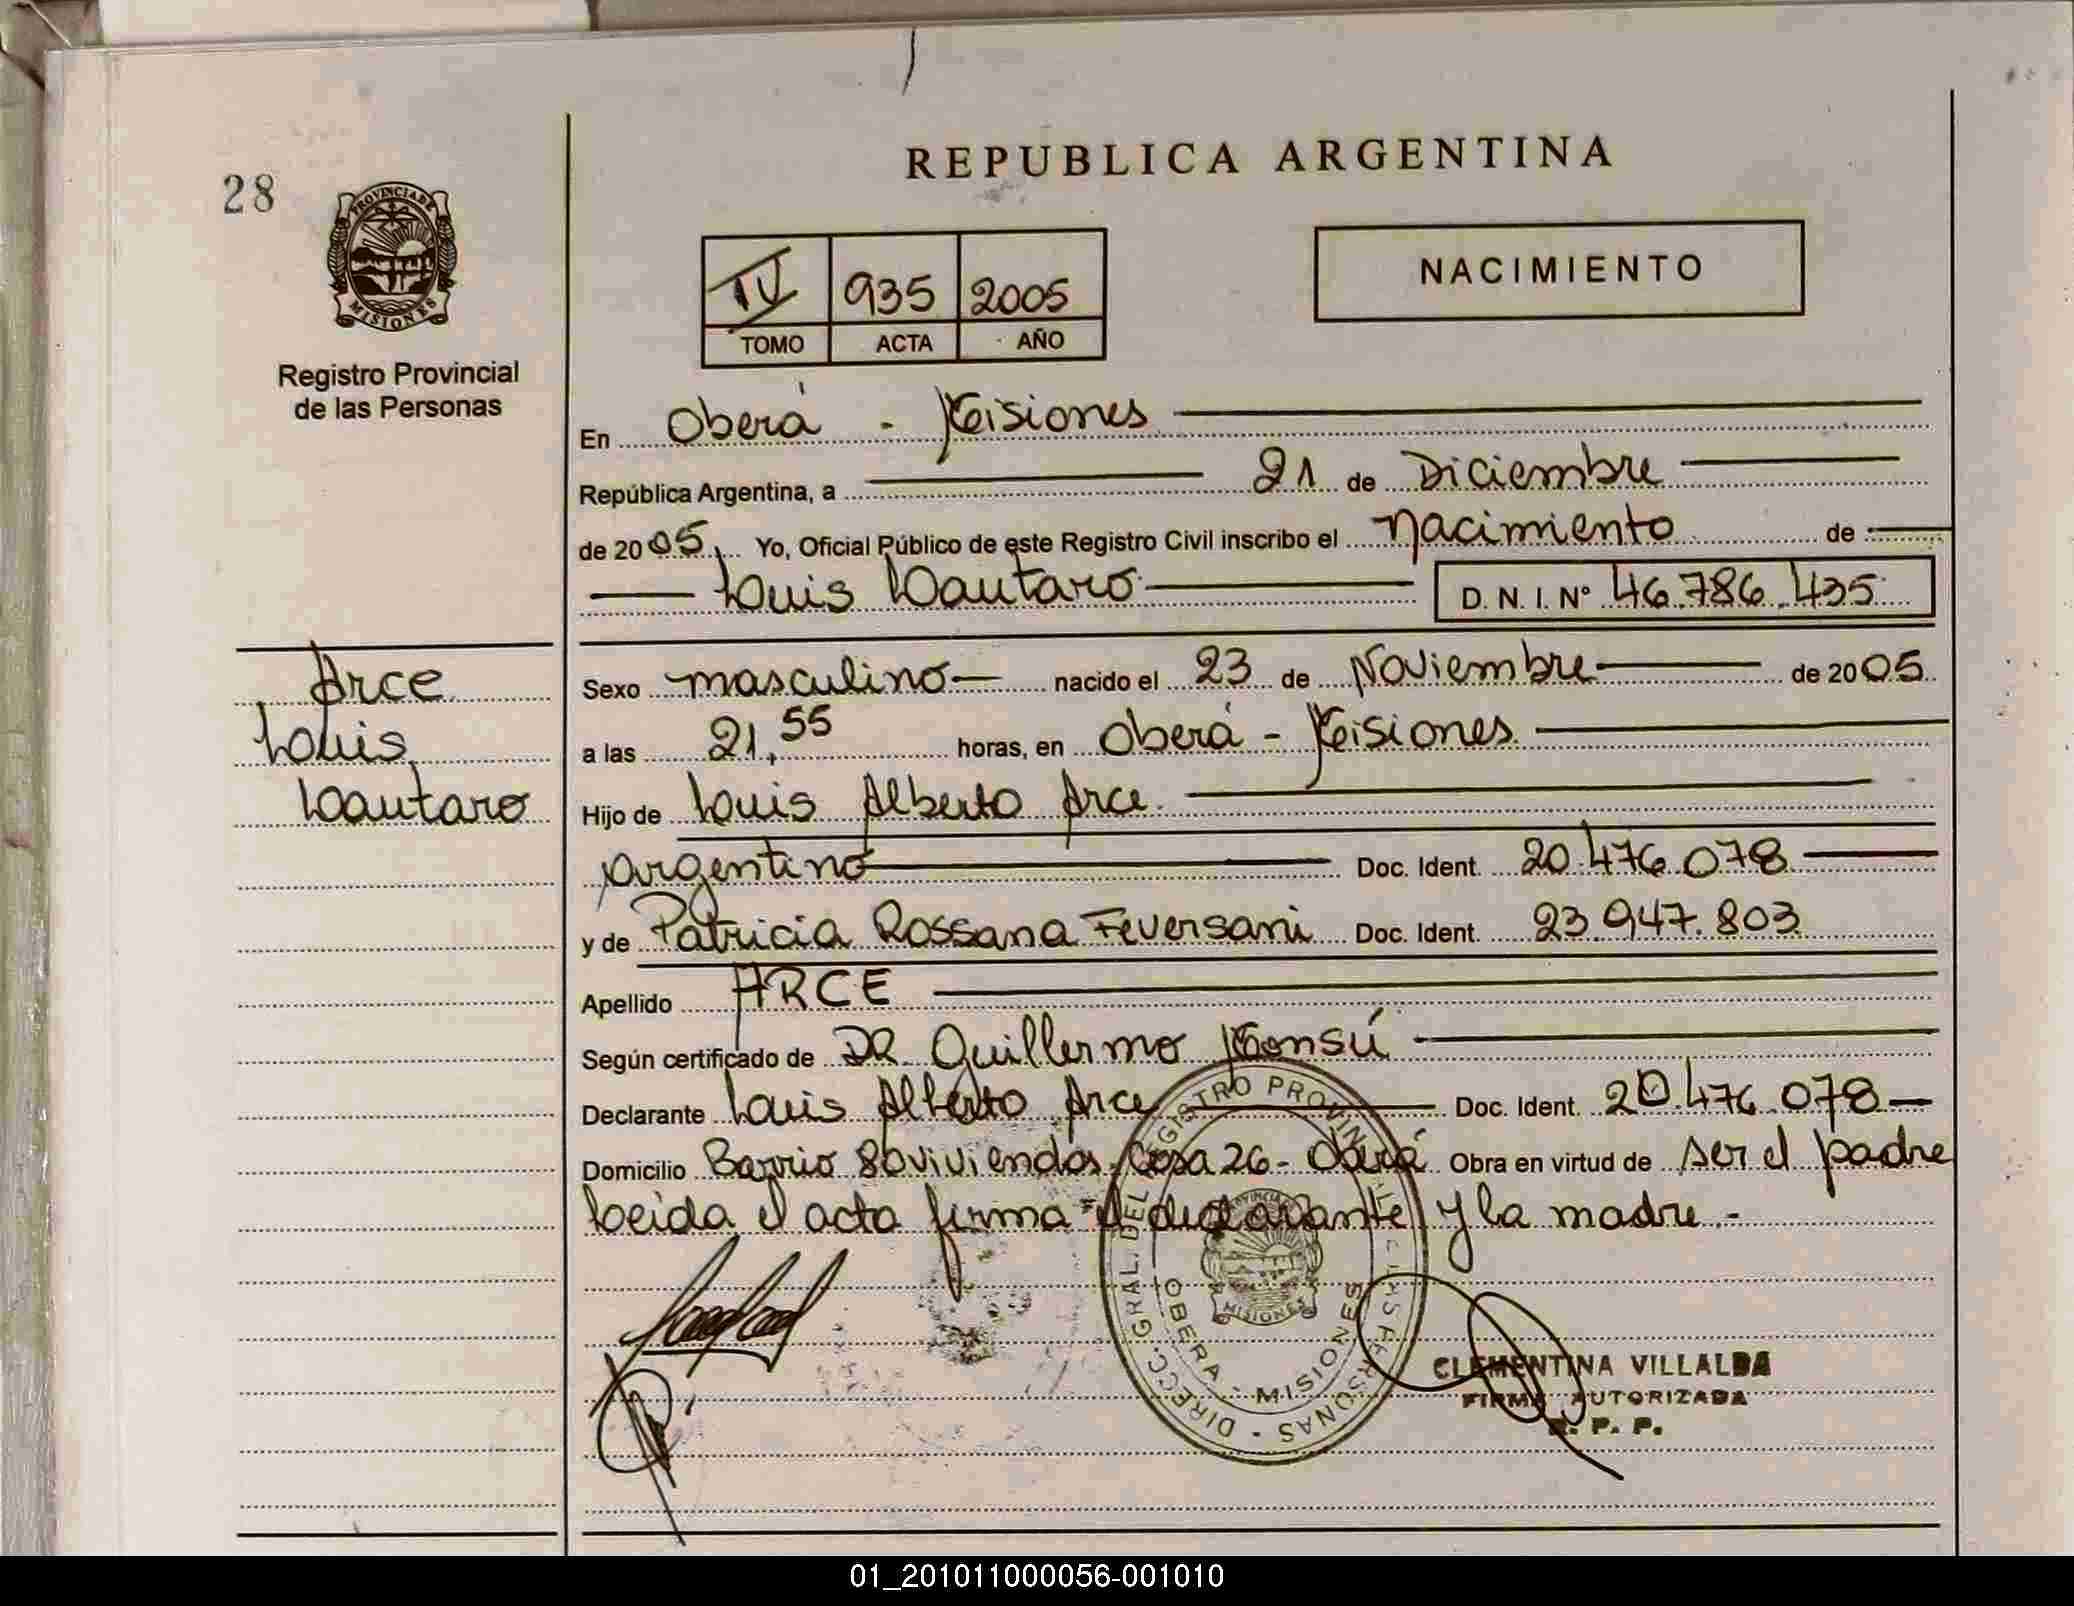 REPUBLICA ARGENTINA
28
PROVINCIA DE
MISIONES
Registro Provincial
de las Personas
IV 935 2005
TOMO ACTA AÑO
NACIMIENTO
En Oberá - Misiones
República Argentina, a 21 de Diciembre
de 2005, Yo, Oficial Público de este Registro Civil inscribo el nacimiento de
Luis Lautaro D.N.I. Nº 46.786.435
Arce
Luis
Lautaro
Sexo masculino nacido el 23 de Noviembre de 2005
a las 21,55 horas, en Oberá - Misiones
Hijo de Luis Alberto Arce
argentino Doc. Ident. 20.476.078
y de Patricia Rossana Feversani Doc. Ident. 23.947.803
Apellido ARCE
Según certificado de DR Guillermo Monsú
Declarante Luis Alberto Arce Doc. Ident. 20.476.078
Domicilio Barrio 80 viviendas, Casa 26 - Oberá Obra en virtud de ser el padre
Leida el acta firma el declarante y la madre.-
DIRECC. GRAL. DEL REGISTRO PROVINCIAL DE LAS PERSONAS
OBERA - MISIONES
MISIONES
CLEMENTINA VILLALBA
FIRMA AUTORIZADA
R. P. P.
01_201011000056-001010